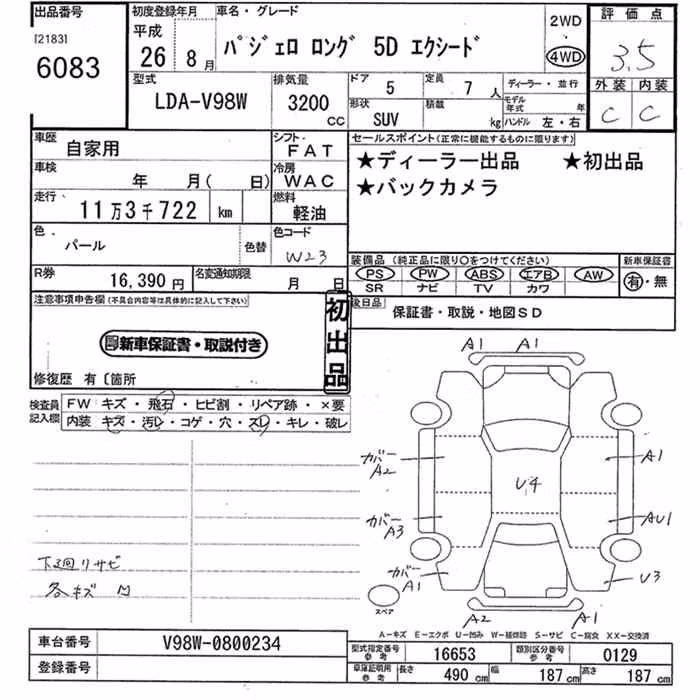 出品番号 初度登録年月 車名・グレード 2WD 評価点
[2183] 平成
6083 26 年 8 月 パジェロ ロング 5D エクシード 4WD 3.5
型式 排気量 ドア 5 定員 7 人 ディーラー・並行 外装 内装
LDA-V98W 3200 CC 形状 SUV 積載 kg モデル年式 年 ハンドル 左・右 C C
車歴 自家用 シフト FAT セールスポイント(正常に機能するものに限ります)
★ディーラー出品 ★初出品
車検 年 月( 日) 冷房 WAC ★バックカメラ
走行 11万3千722 km 燃料 軽油
色 パール 色替 色コード W23
装備品(純正品に限り○をつけてください) 新車保証書
PS PW ABS エアB AW 有・無
R券 16,390円 名変通知期限 月 日 SR ナビ TV カワ
注意事項申告欄(不具合内容等は具体的に記入して下さい) 初出品 後日品 保証書・取説・地図SD
新車保証書・取説付き
修復歴 有〔箇所
検査員記入欄 FW キズ・飛石・ヒビ割・リペア跡・×要
内装 キズ・汚レ・コゲ・穴・スレ・キレ・破レ
A1 A1
カバーA2 A1
U4
カバーA3 AU1
下廻リサビ
各キズ凹
カバーA1 U3
スペア
A2 A1
A-キズ E-エクボ U-凹み W-補修跡 S-サビ C-腐食 XX-交換済
車台番号 V98W-0800234
型式指定番号 参考 16653 類別区分番号 参考 0129
登録番号
車庫証明用 参考 長さ 490 cm 幅 187 cm 高さ 187 cm